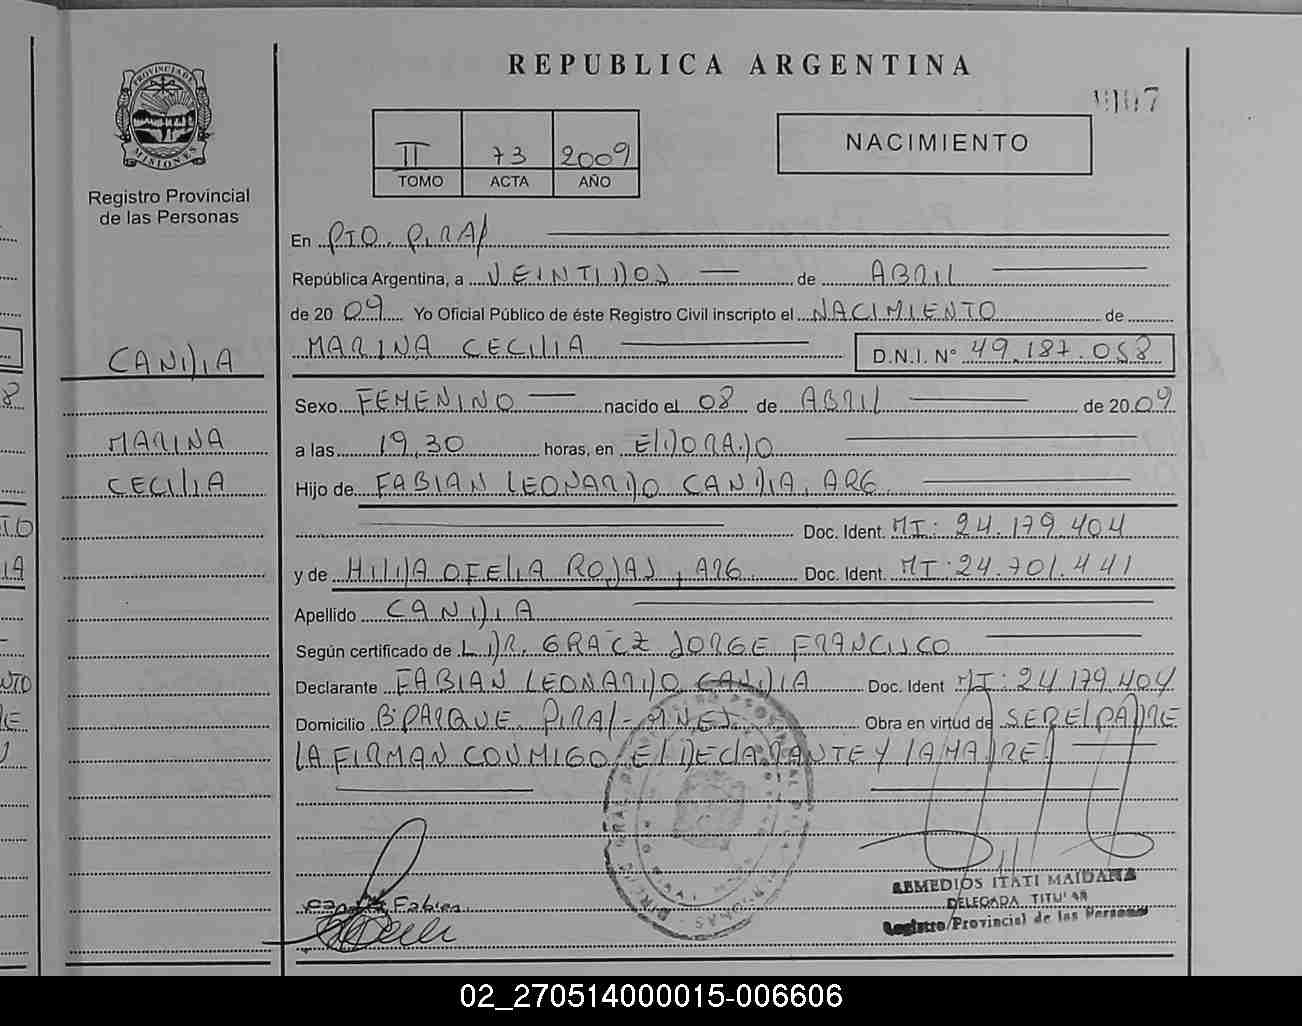 REPUBLICA ARGENTINA
PROVINCIA DE
MISIONES
Registro Provincial
de las Personas
II 73 2009
TOMO ACTA AÑO
NACIMIENTO
En PTO. PIRAY
República Argentina, a VEINTIDOS de ABRIL
de 2009 Yo Oficial Público de éste Registro Civil inscripto el NACIMIENTO de
MARINA CECILIA D.N.I. N° 49.187.058
CANDIA
Sexo FEMENINO nacido el 08 de ABRIL de 2009
MARINA
a las 19,30 horas, en ELDORADO
CECILIA
Hijo de FABIAN LEONARDO CANDIA, ARG.
Doc. Ident. MI: 24.179.404
y de HILDA OFELIA ROJAS, ARG. Doc. Ident. MI: 24.701.441
Apellido CANDIA
Según certificado de L DR. GRACZ JORGE FRANCISCO
Declarante FABIAN LEONARDO CANDIA Doc. Ident MI: 24.179.404
Domicilio B° PARQUE. PIRAY-MNES. Obra en virtud de SER EL PADRE
LA FIRMAN CONMIGO EL DECLARANTE Y LA MADRE.
Fabian
REMEDIOS ITATI MAIDANA
DELEGADA TITULAR
Registro Provincial de las Personas
02_270514000015-006606